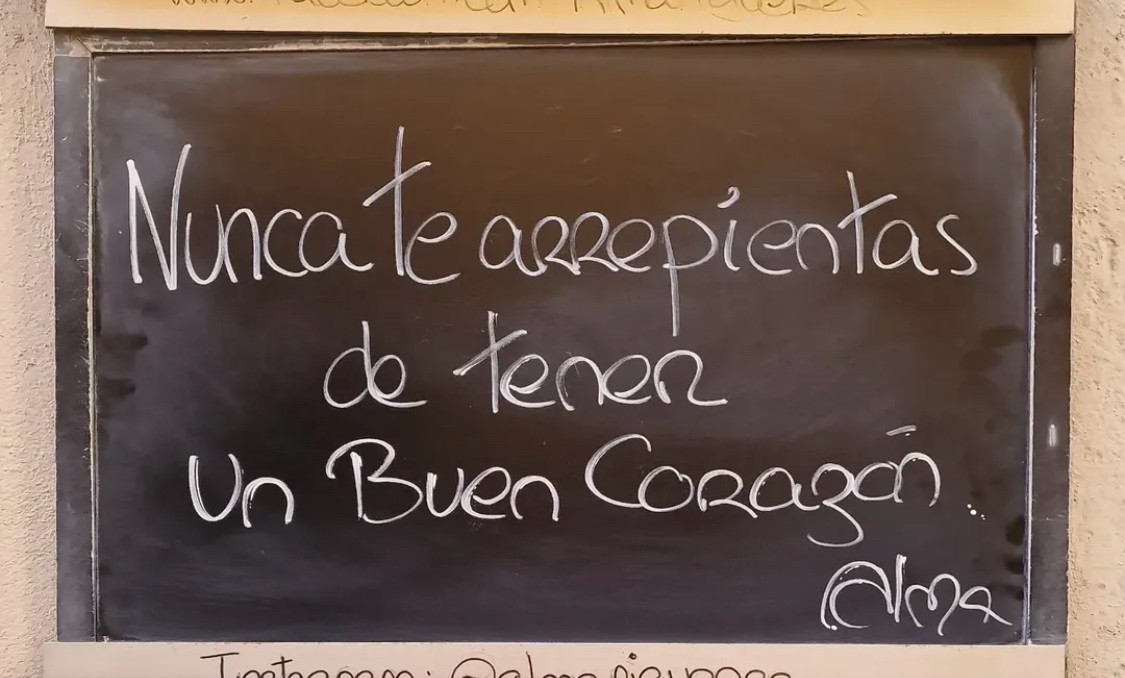 Nunca te arrepientas
de tener
un Buen Corazón...
Alma
Instagram: